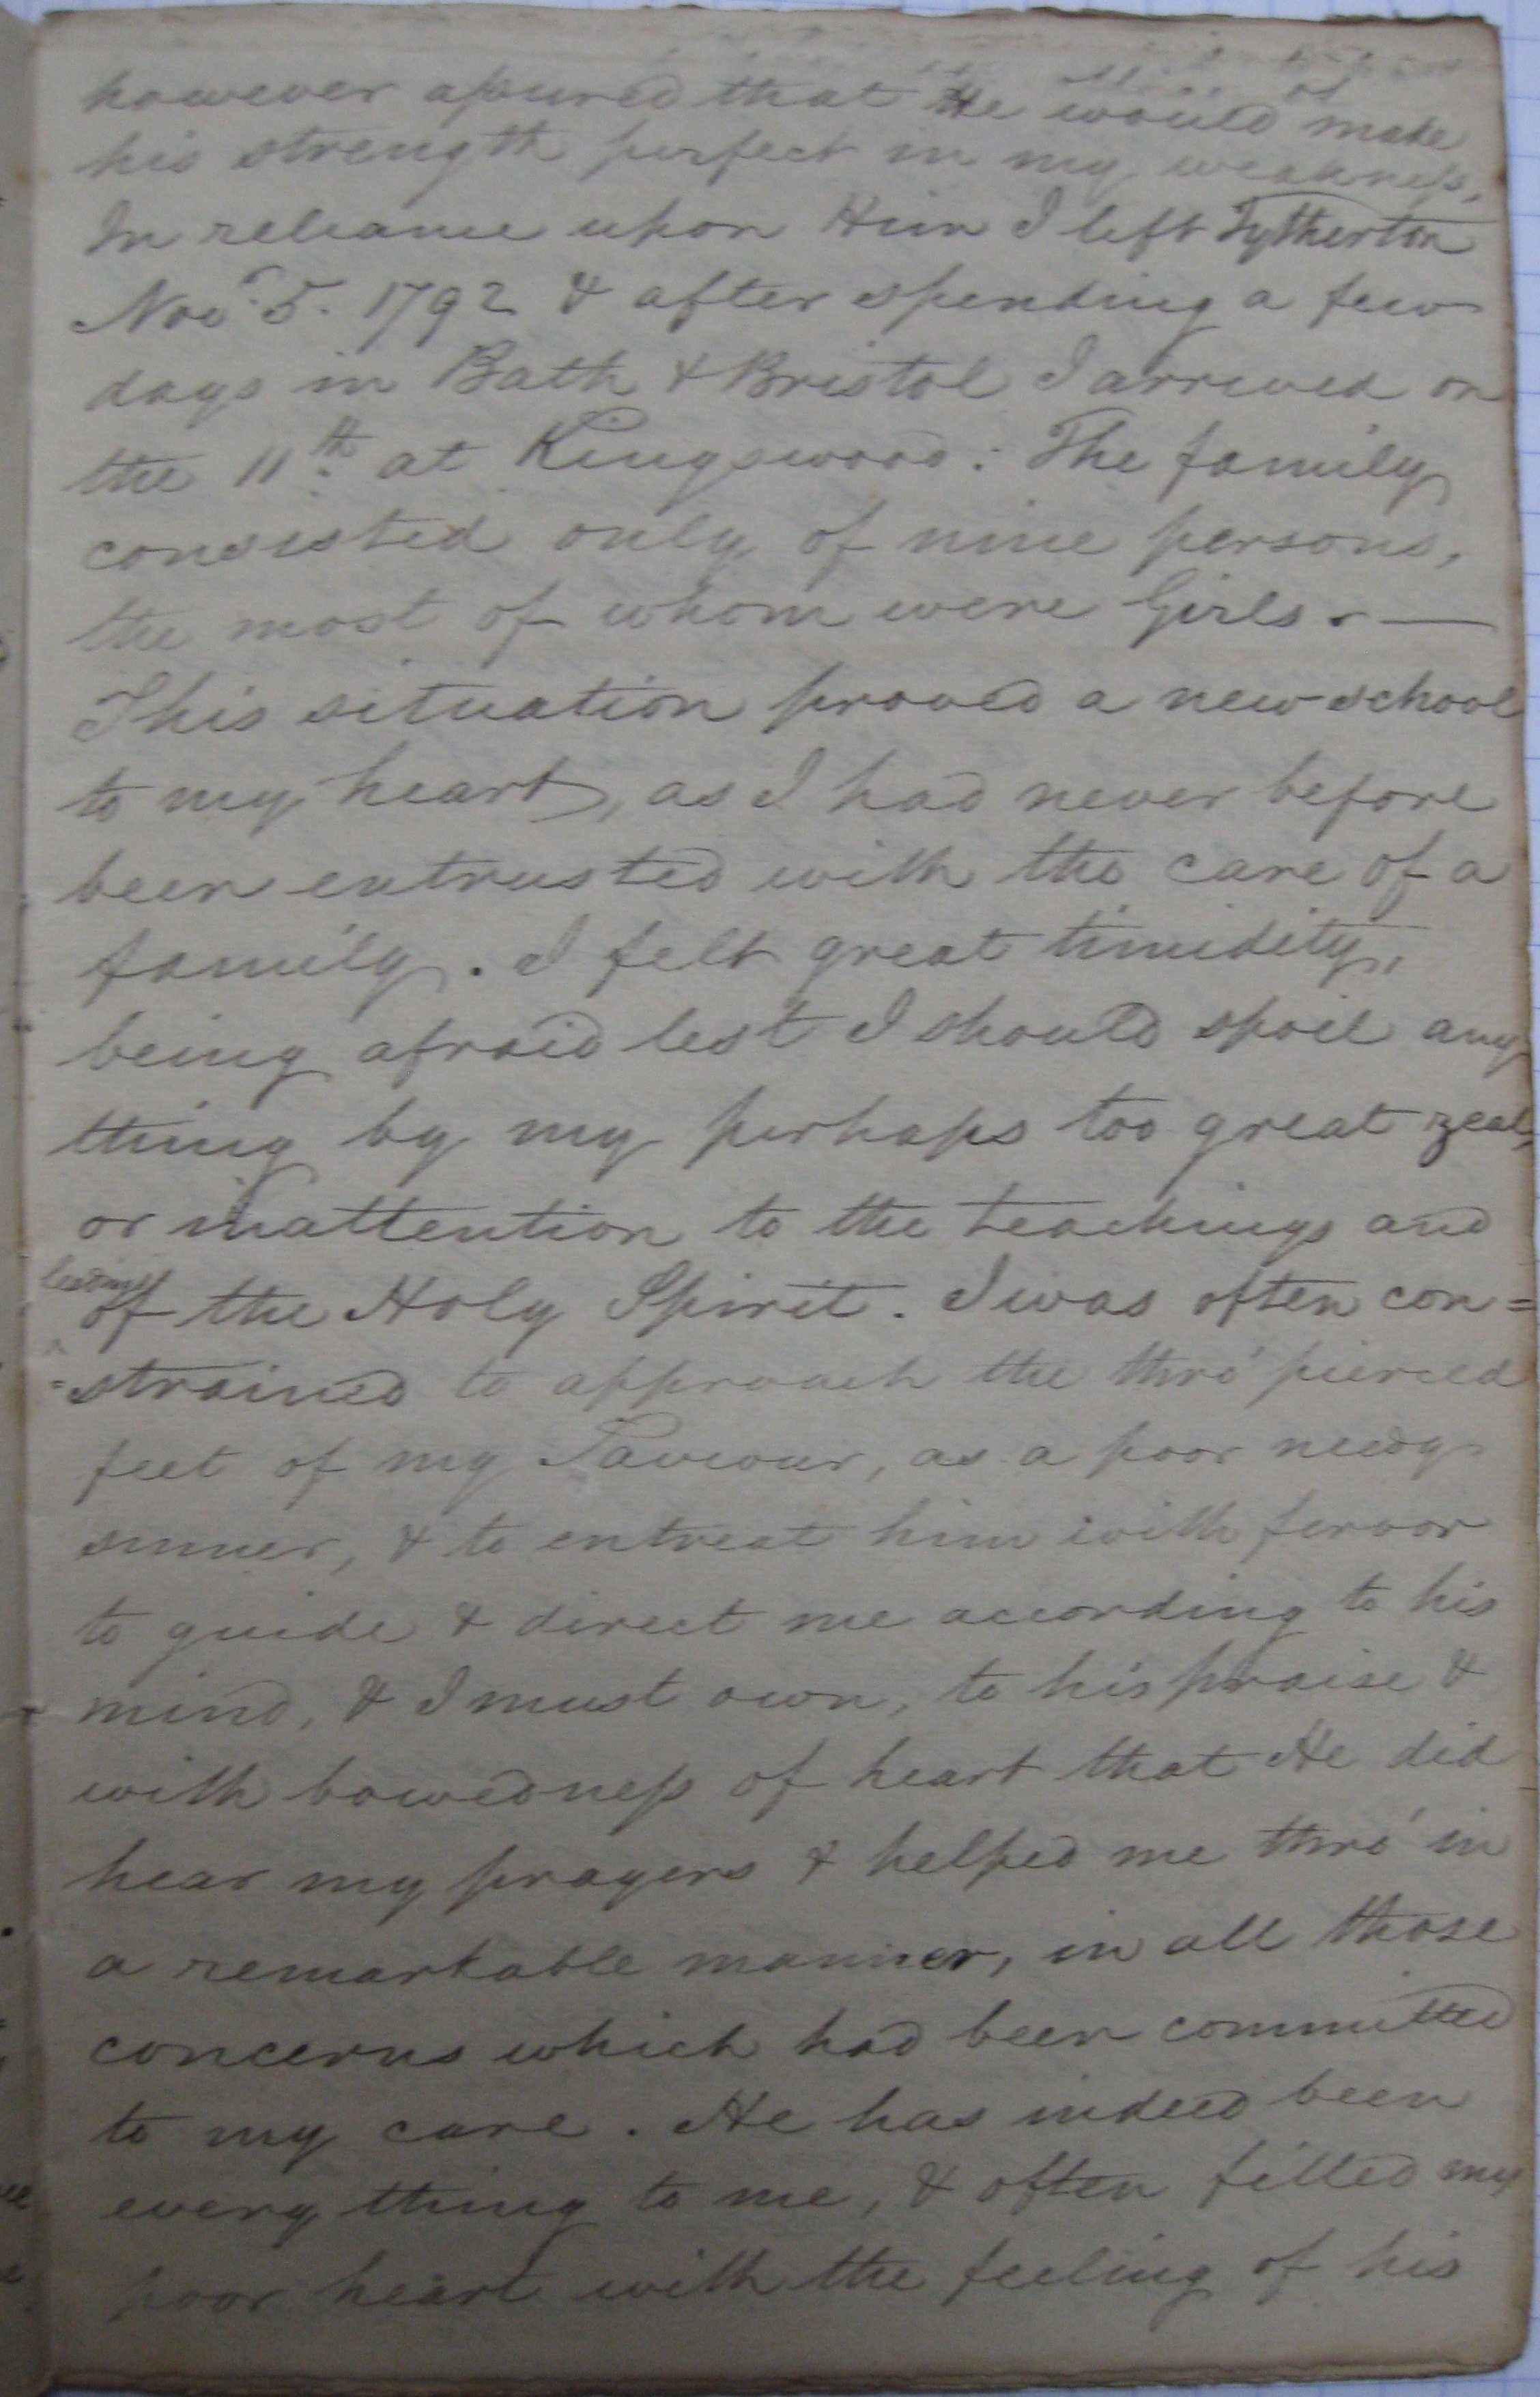 however assured that He would make
his strength perfect in my weakness.
In reliance upon Him I left Tytherton
Nov.r 5. 1792 & after spending a few
days in Bath & Bristol I arrived on
the 11th at Kingswood: The family
consisted only of nine persons,
the most of whom were Girls. —
This situation proved a new school
to my heart, as I had never before
been entrusted with the care of a
family. I felt great timidity,
being afraid lest I should spoil any
thing by my perhaps too great zeal,
or inattention to the teachings and
leadings
of the Holy Spirit. I was often con=
=strained to approach the thro' pierced
feet of my Saviour, as a poor needy
sinner, & to entreat him with fervor
to guide & direct me according to his
mind, & I must own, to his praise &
with bowedness of heart that He did
hear my prayers & helped me thro' in
a remarkable manner, in all those
concerns which had been committed
to my care. He has indeed been
every thing to me, & often filled my
poor heart with the feeling of his